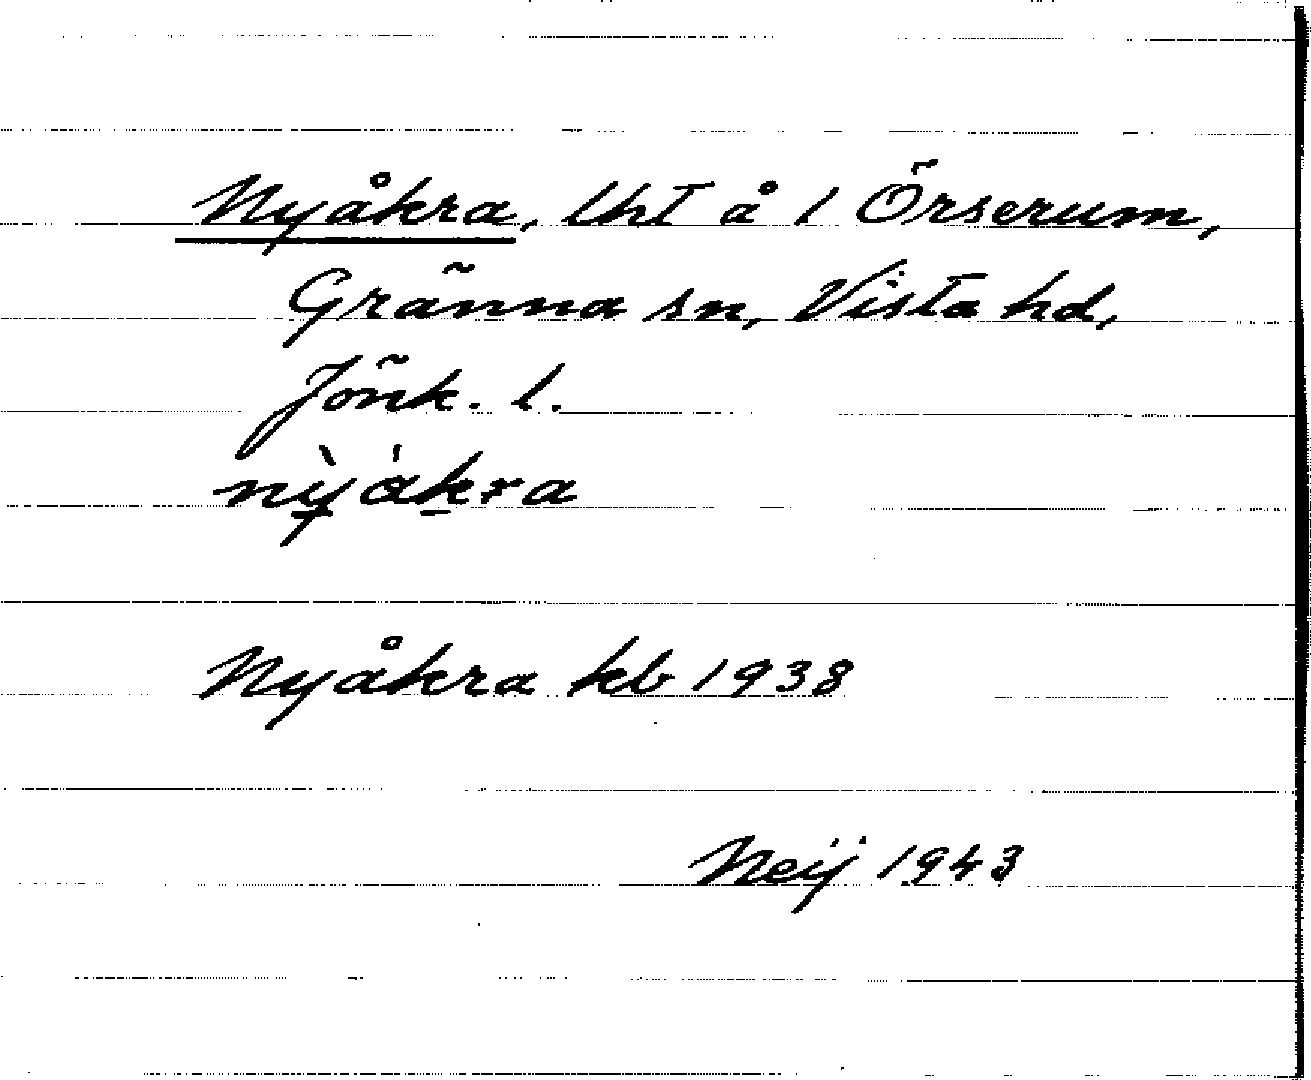 Nyåkra, lht å 1 Örserum,
Gränna sn, Vista hd,
Jönk. l.
nỳ̱ák̲ra
Nyåkra kb 1938
Neij 1943